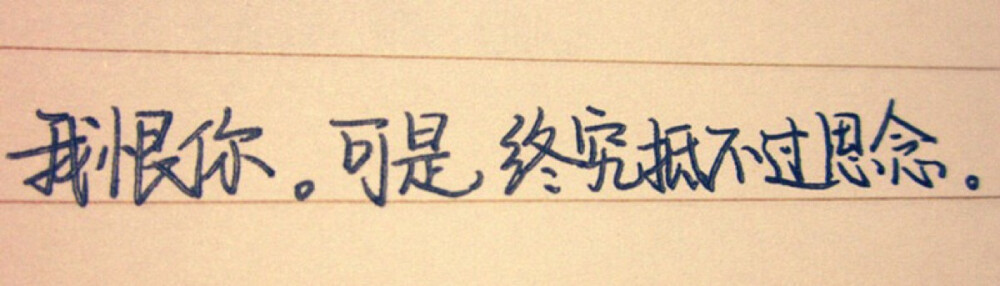 我恨你。可是,终究抵不过思念。